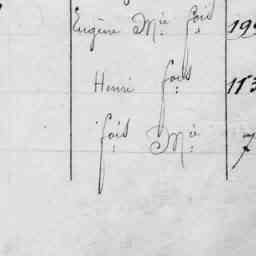 Eugène Mie fois 199
Henri fois 113
fois Mie 7